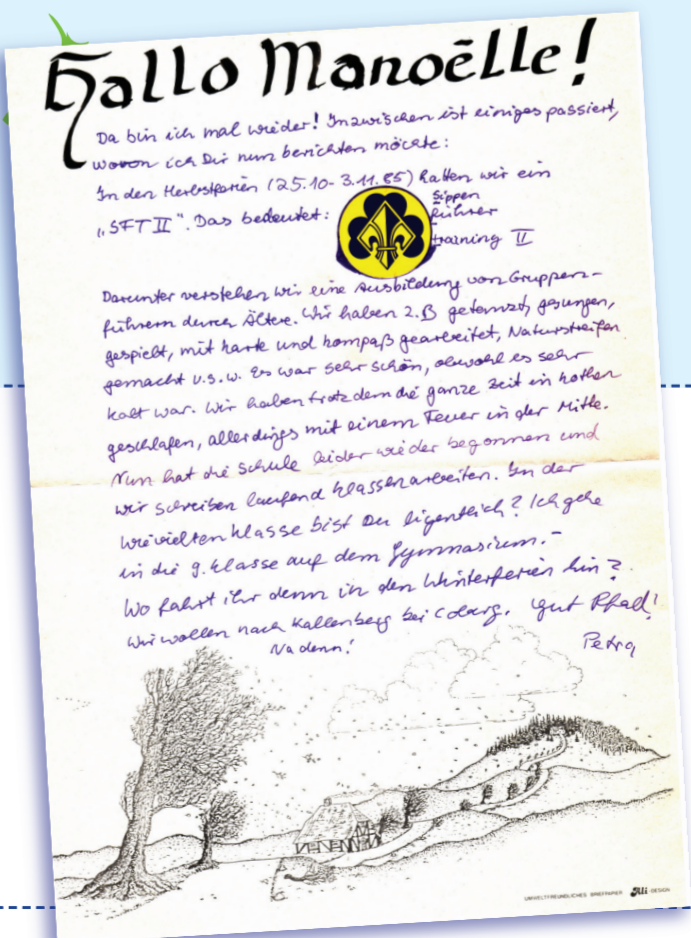 Hallo Manoëlle!
Da bin ich mal wieder! Inzwischen ist einiges passiert,
wovon ich Dir nun berichten möchte:
In den Herbstferien (25.10-3.11.85) hatten wir ein
„SFT II". Das bedeutet: Sippen
führer
training II
Darunter verstehen wir eine Ausbildung von Gruppen-
führern durch Ältere. Wir haben z.B getanzt, gesungen,
gespielt, mit Karte und Kompaß gearbeitet, Naturstreifen
gemacht u.s.w. Es war sehr schön, obwohl es sehr
kalt war. Wir haben trotzdem die ganze Zeit in Kothen
geschlafen, allerdings mit einem Feuer in der Mitte.
Nun hat die Schule leider wieder begonnen und
wir schreiben laufend Klassenarbeiten. In der
wievielten Klasse bist Du eigentlich? Ich gehe
in die 9. Klasse auf dem Gymnasium.-
Wo fahrt ihr denn in den Winterferien hin?
Wir wollen nach Kallenberg bei Coburg. Gut Pfad!
Na denn! Petra
UMWELTFREUNDLICHES BRIEFPAPIER Alli DESIGN